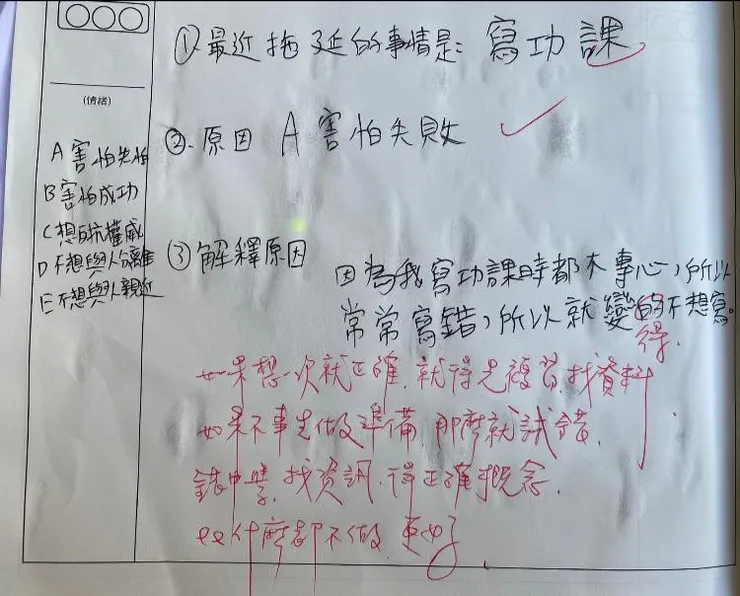 (情緒)
A 害怕失怕
B 害怕成功
C 想抗權威
D 不想與人分離
E 不想與人親近
①.最近拖延的事情是: 寫功課
②.原因 A 害怕失敗
③解釋原因
因為我寫功課時都不專心,所以
常常寫錯,所以就變的不想寫。
得.
如果想一次就正確,就得先複習,找資料
如果不事先做準備,那麼就試錯,
錯中學,找資訊,得正確概念,
比什麼都不做,更好.